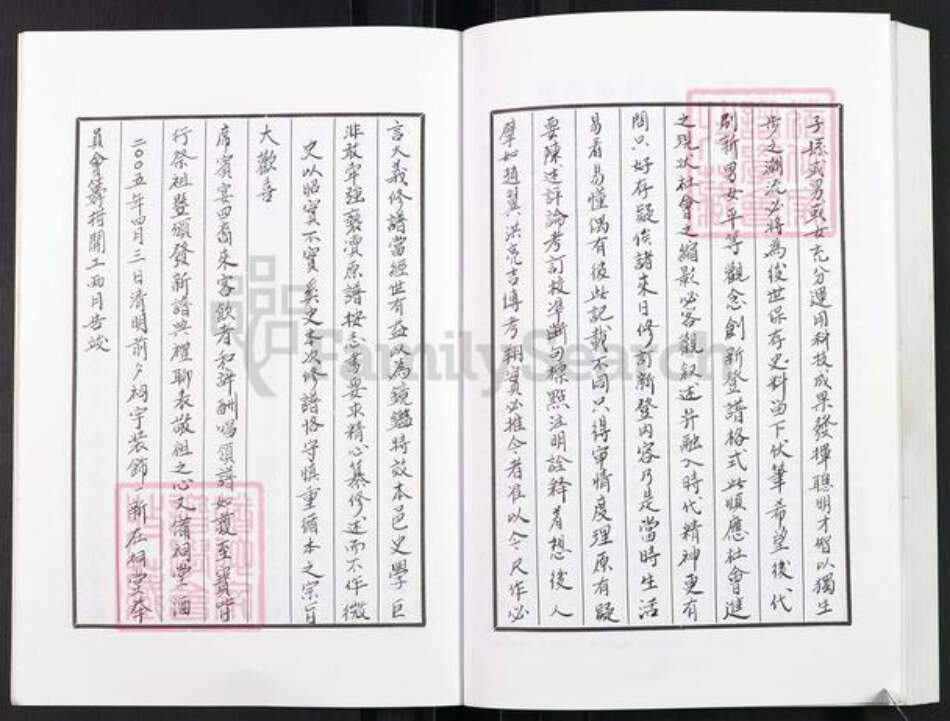 子孫或男或女充分運用科技成果發揮聰明才智以獨生
步之潮流必將為後世保存史料留下伏筆希望後代
刷新男女平等觀念創新登譜格式此順應社會進
之現狀社會之縮影必客觀叙述并融入時代精神更有
闊只好存疑俟諸來日修訂新登內容乃是當時生活
易看易懂偶有彼此記載不同只得審情度理原有疑
要陳述評論考訂校準斷句標點注明詮釋着想後人
譬如趙翼洪亮吉博考翔實必推今者准以今尺作必
言大義修譜當經世有益以為鏡鑑特效本邑史學巨
非敢牢強褻瀆原譜按志書要求精心纂修述而不作微
史以昭實不實奚史本次修譜恪守慎重循本之宗旨
大歡喜
席賓宴四方來客飲者和許酬唱領譜如獲至寶皆
行祭祖暨頒發新譜典禮聊表敬祖之心又蕭祠堂酒
二00五年四月三日清明前夕祠宇裝飾一新在祠堂舉
員會籌措開工兩月告竣
FamilySearch